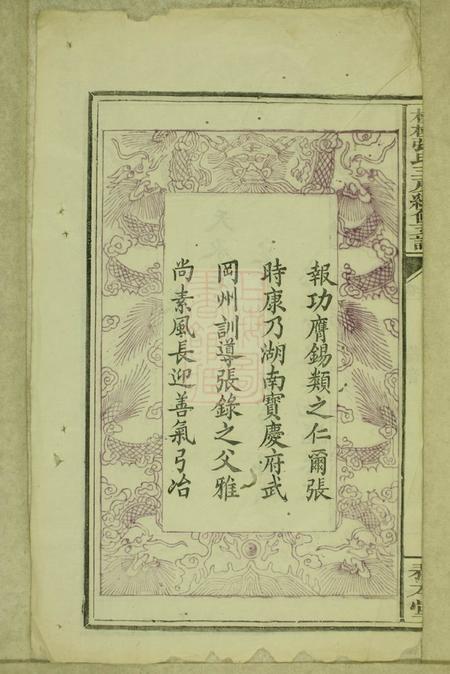 報功膺錫類之仁爾張
時康乃湖南寳慶府武
岡州訓導張錄之父雅
尚素風長迎善氣弓冶
張氏三房續修